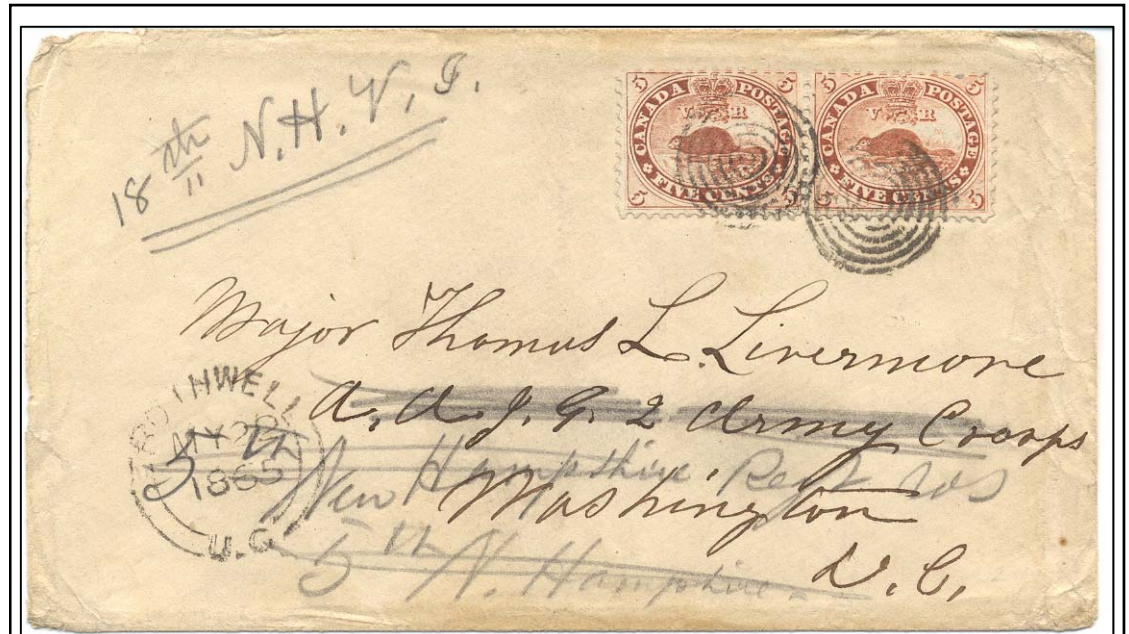 18th N.H.V.I.
5 CANADA POSTAGE 5
V R
5 FIVE CENTS 5
5 CANADA POSTAGE 5
V R
5 FIVE CENTS 5
Major Thomas L. Livermore
A. A. J. G. 2 Army Coorps
5th New Hampshire, Regt Vols
Washington
5th N. Hampshire.
D.C.
BOTHWELL
MY
1865
U.C